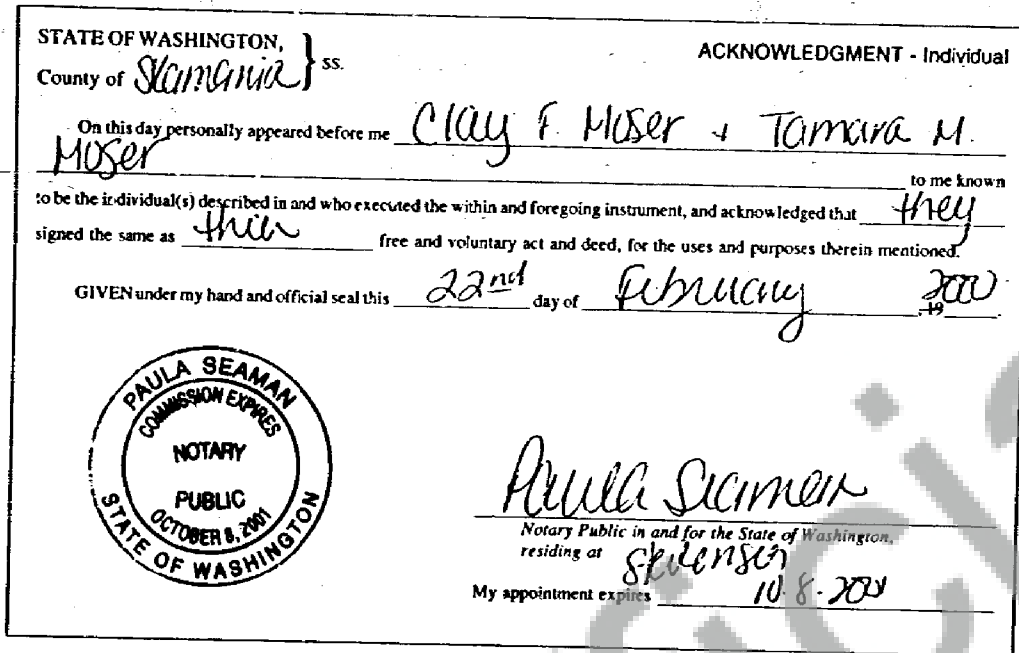 STATE OF WASHINGTON,
County of Skamania } ss.
ACKNOWLEDGMENT - Individual
On this day personally appeared before me Clay F. Moser + Tamara M.
Moser to me known
to be the individual(s) described in and who executed the within and foregoing instrument, and acknowledged that they
signed the same as thier free and voluntary act and deed, for the uses and purposes therein mentioned.
GIVEN under my hand and official seal this 22nd day of February 19 2000
PAULA SEAMAN
COMMISSION EXPIRES
NOTARY
PUBLIC
OCTOBER 8, 2001
STATE OF WASHINGTON
Paula Seaman
Notary Public in and for the State of Washington,
residing at Stevenson
My appointment expires 10-8-2001